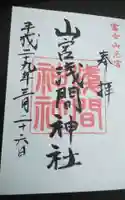 奉拝
富士山元宮
山宮浅間神社
浅間神社
平成二九年三月二十六日